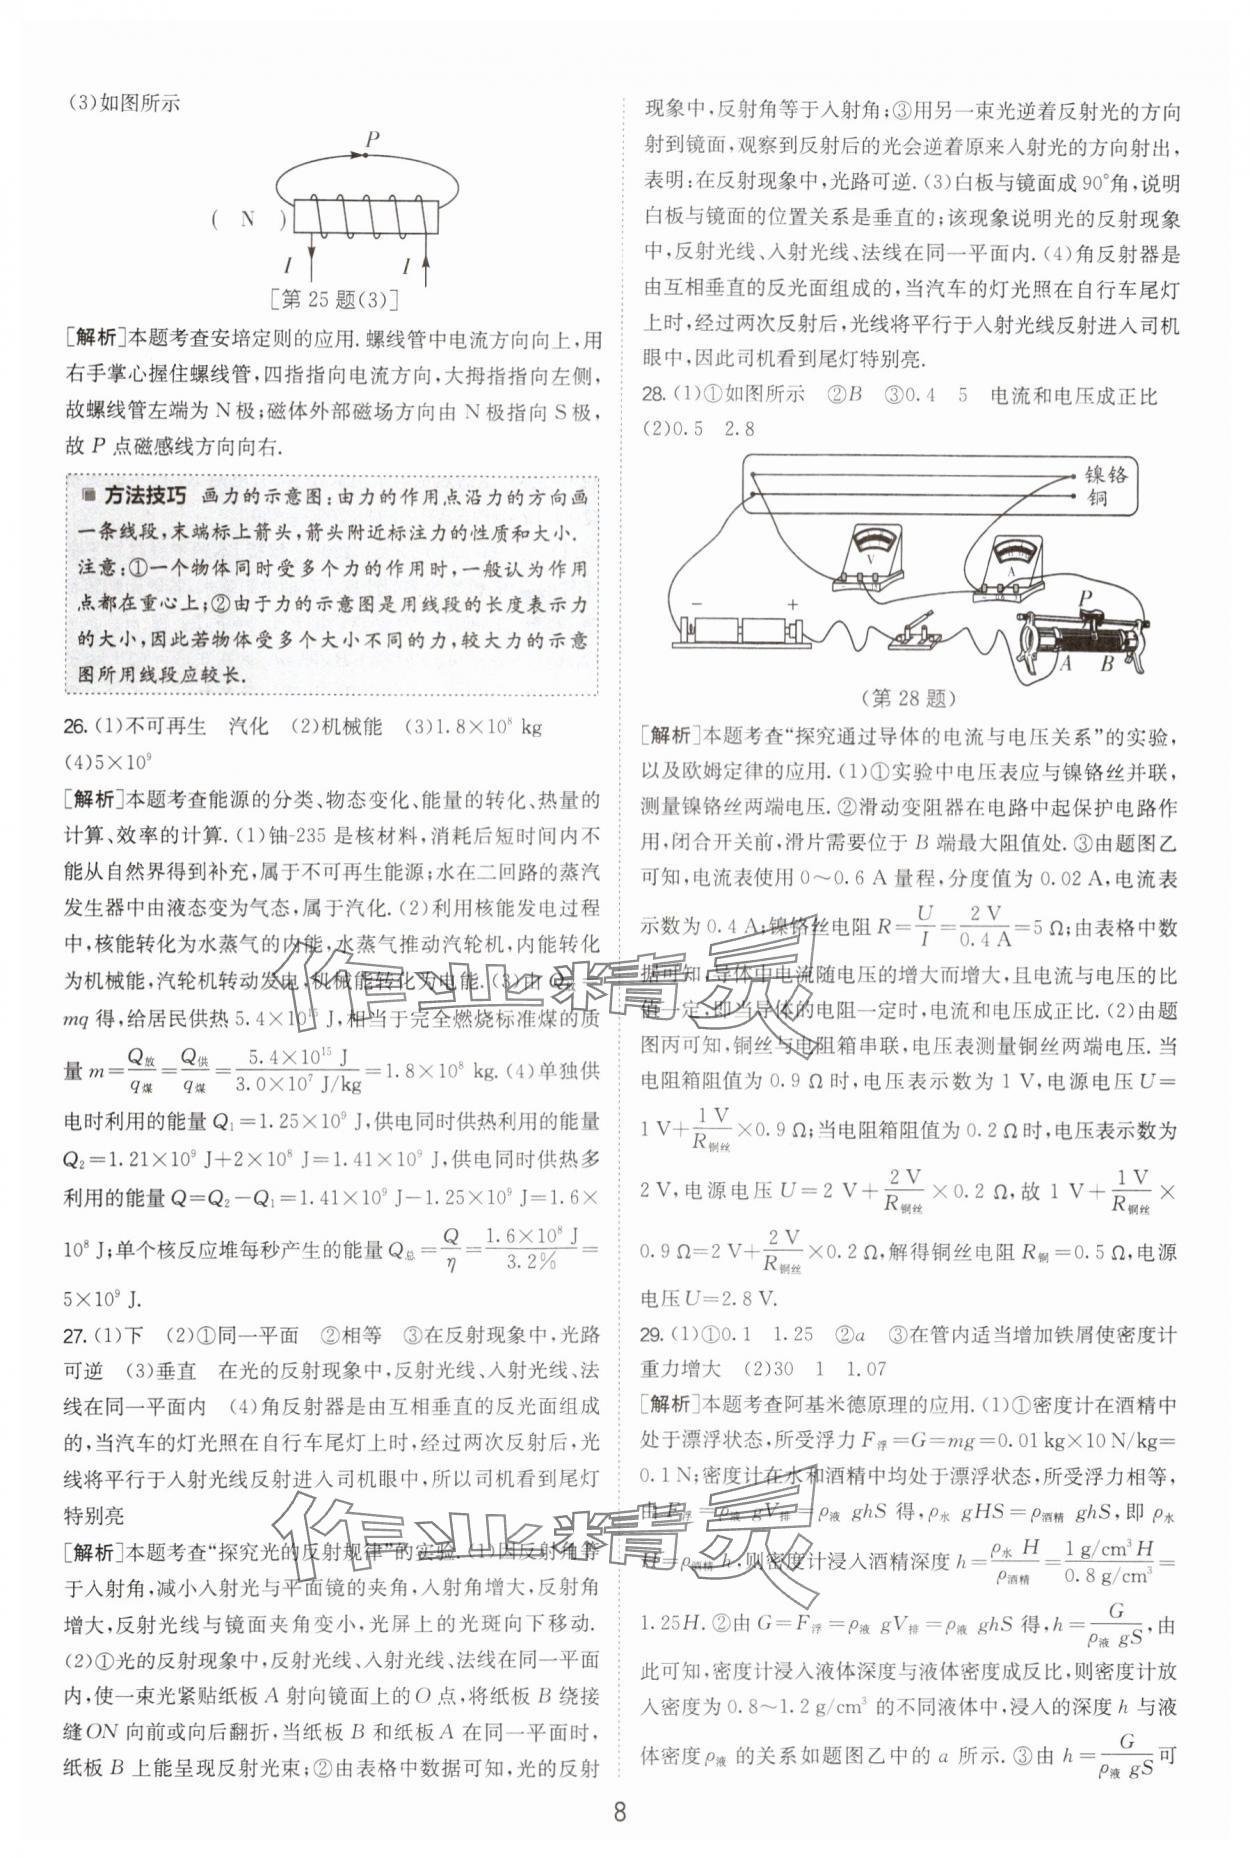 (3)如图所示
P
( N )
I
I
[第25题(3)]
[解析]本题考查安培定则的应用. 螺线管中电流方向向上,用
右手掌心握住螺线管,四指指向电流方向,大拇指指向左侧,
故螺线管左端为 N 极;磁体外部磁场方向由 N 极指向 S 极,
故 P 点磁感线方向向右.
方法技巧 画力的示意图:由力的作用点沿力的方向画
一条线段,末端标上箭头,箭头附近标注力的性质和大小.
注意:①一个物体同时受多个力的作用时,一般认为作用
点都在重心上;②由于力的示意图是用线段的长度表示力
的大小,因此若物体受多个大小不同的力,较大力的示意
图所用线段应较长.
26. (1)不可再生 汽化 (2)机械能 (3)1.8×10⁸ kg
(4)5×10⁹
[解析]本题考查能源的分类、物态变化、能量的转化、热量的
计算、效率的计算. (1)铀-235 是核材料,消耗后短时间内不
能从自然界得到补充,属于不可再生能源;水在二回路的蒸汽
发生器中由液态变为气态,属于汽化. (2)利用核能发电过程
中,核能转化为水蒸气的内能,水蒸气推动汽轮机,内能转化
为机械能,汽轮机转动发电,机械能转化为电能. (3)由 Q放=
mq 得,给居民供热 5.4×10¹⁵ J,相当于完全燃烧标准煤的质
量 m=Q放/q煤=Q供/q煤=5.4×10¹⁵ J/3.0×10⁷ J/kg=1.8×10⁸ kg. (4)单独供
电时利用的能量 Q₁=1.25×10⁹ J,供电同时供热利用的能量
Q₂=1.21×10⁹ J+2×10⁸ J=1.41×10⁹ J,供电同时供热多
利用的能量 Q=Q₂-Q₁=1.41×10⁹ J-1.25×10⁹ J=1.6×
10⁸ J;单个核反应堆每秒产生的能量 Q总=Q/η=1.6×10⁸ J/3.2%=
5×10⁹ J.
27. (1)下 (2)①同一平面 ②相等 ③在反射现象中,光路
可逆 (3)垂直 在光的反射现象中,反射光线、入射光线、法
线在同一平面内 (4)角反射器是由互相垂直的反光面组成
的,当汽车的灯光照在自行车尾灯上时,经过两次反射后,光
线将平行于入射光线反射进入司机眼中,所以司机看到尾灯
特别亮
[解析]本题考查“探究光的反射规律”的实验. (1)因反射角等
于入射角,减小入射光与平面镜的夹角,入射角增大,反射角
增大,反射光线与镜面夹角变小,光屏上的光斑向下移动.
(2)①光的反射现象中,反射光线、入射光线、法线在同一平面
内,使一束光紧贴纸板 A 射向镜面上的 O 点,将纸板 B 绕接
缝ON 向前或向后翻折,当纸板 B 和纸板 A 在同一平面时,
纸板 B 上能呈现反射光束;②由表格中数据可知,光的反射
现象中,反射角等于入射角;③用另一束光逆着反射光的方向
射到镜面,观察到反射后的光会逆着原来入射光的方向射出,
表明:在反射现象中,光路可逆. (3)白板与镜面成90°角,说明
白板与镜面的位置关系是垂直的;该现象说明光的反射现象
中,反射光线、入射光线、法线在同一平面内. (4)角反射器是
由互相垂直的反光面组成的,当汽车的灯光照在自行车尾灯
上时,经过两次反射后,光线将平行于入射光线反射进入司机
眼中,因此司机看到尾灯特别亮.
28. (1)①如图所示 ②B ③0.4 5 电流和电压成正比
(2)0.5 2.8
镍铬
铜
V
A
− +
P
A B
(第28题)
[解析]本题考查“探究通过导体的电流与电压关系”的实验,
以及欧姆定律的应用. (1)①实验中电压表应与镍铬丝并联,
测量镍铬丝两端电压. ②滑动变阻器在电路中起保护电路作
用,闭合开关前,滑片需要位于 B 端最大阻值处. ③由题图乙
可知,电流表使用 0～0.6 A 量程,分度值为 0.02 A,电流表
示数为 0.4 A;镍铬丝电阻 R=U/I=2 V/0.4 A=5 Ω;由表格中数
据可知,导体中电流随电压的增大而增大,且电流与电压的比
值一定,即当导体的电阻一定时,电流和电压成正比. (2)由题
图丙可知,铜丝与电阻箱串联,电压表测量铜丝两端电压. 当
电阻箱阻值为 0.9 Ω 时,电压表示数为 1 V,电源电压 U=
1 V+1 V/R铜丝×0.9 Ω;当电阻箱阻值为 0.2 Ω时,电压表示数为
2 V,电源电压 U=2 V+2 V/R铜丝×0.2 Ω,故 1 V+1 V/R铜丝×
0.9 Ω=2 V+2 V/R铜丝×0.2 Ω,解得铜丝电阻 R铜=0.5 Ω,电源
电压U=2.8 V.
29. (1)①0.1 1.25 ②a ③在管内适当增加铁屑使密度计
重力增大 (2)30 1 1.07
[解析]本题考查阿基米德原理的应用. (1)①密度计在酒精中
处于漂浮状态,所受浮力 F浮=G=mg=0.01 kg×10 N/kg=
0.1 N;密度计在水和酒精中均处于漂浮状态,所受浮力相等,
由 F浮=ρ液 gV排=ρ液 ghS 得,ρ水 gHS=ρ酒精 ghS,即 ρ水
H=ρ酒精 h,则密度计浸入酒精深度 h=ρ水 H/ρ酒精=1 g/cm³ H/0.8 g/cm³=
1.25H. ②由 G=F浮=ρ液 gV排=ρ液 ghS 得,h=G/ρ液 gS,由
此可知,密度计浸入液体深度与液体密度成反比,则密度计放
入密度为 0.8～1.2 g/cm³ 的不同液体中,浸入的深度 h 与液
体密度ρ液 的关系如题图乙中的 a 所示. ③由 h=G/ρ液 gS可
8
作业精灵
作业精灵